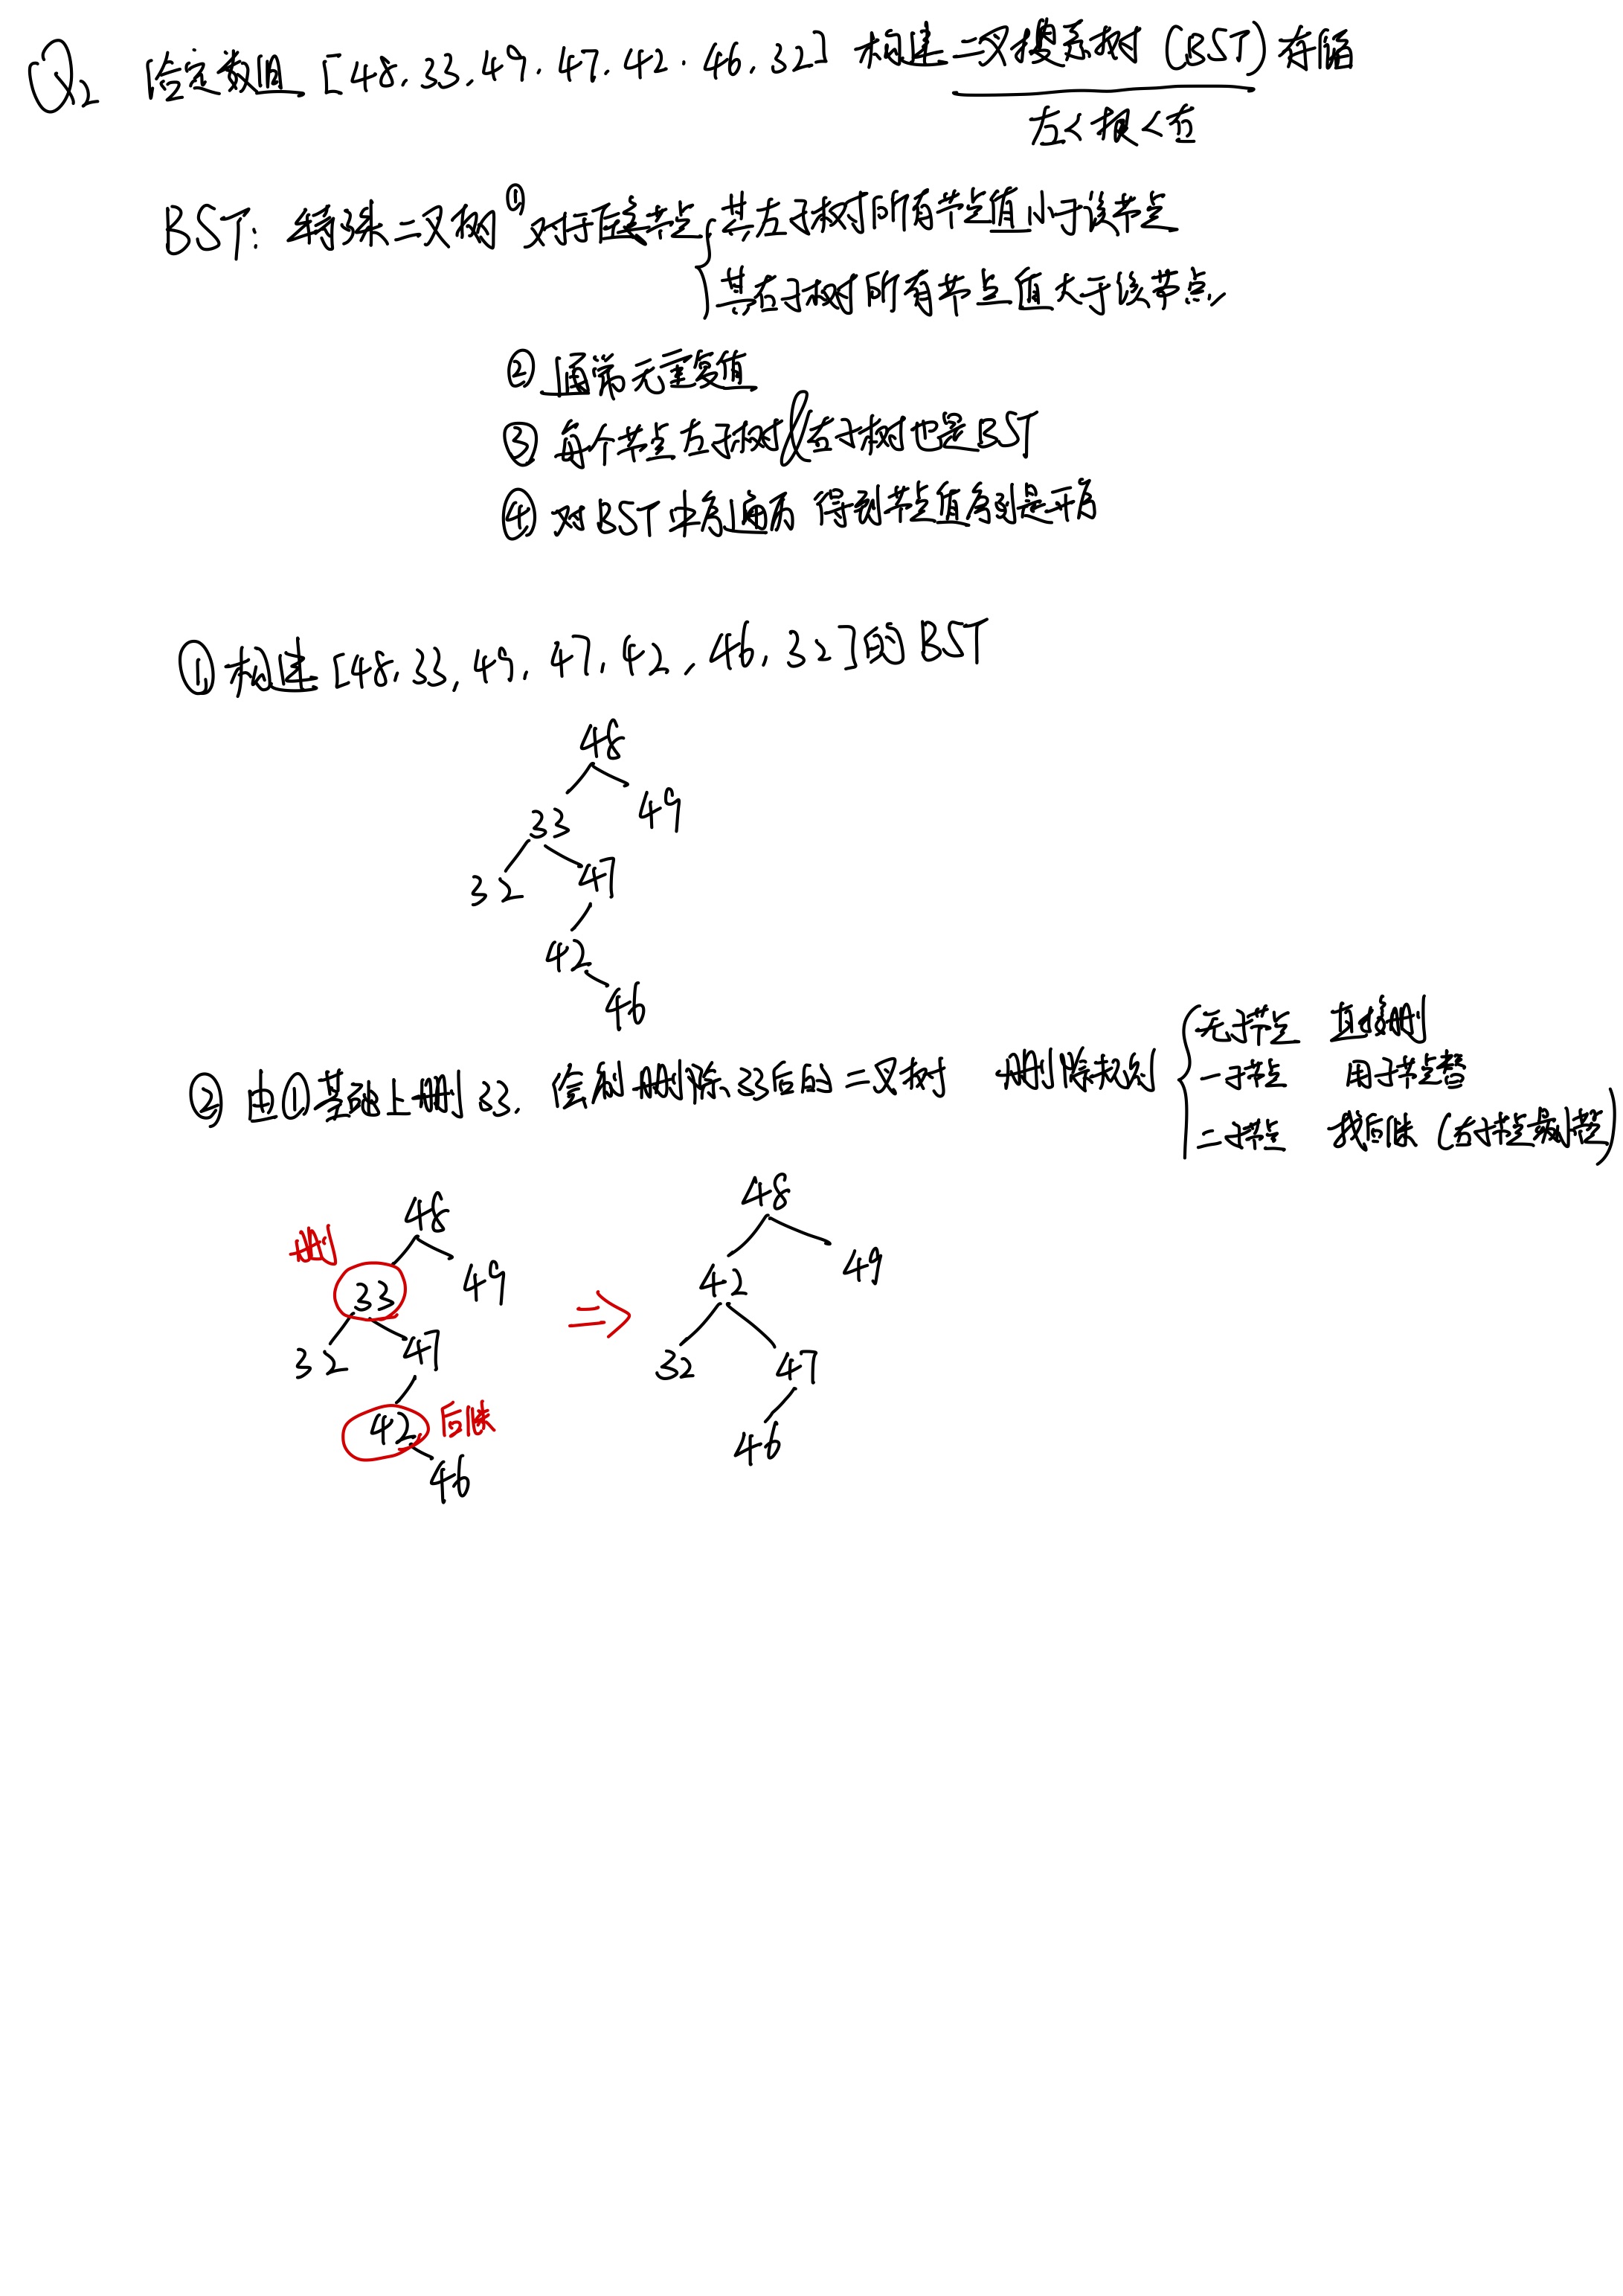 Q2 给定数值 [48,33,49,47,42,46,32] 构建二叉搜索树 (BST) 存储
左<根<右
BST: 特殊二叉树 ① 对于任意节点 { 其左子树所有节点值小于该节点
其右子树所有节点值大于该节点
② 通常无重复值
③ 每个节点左子树&右子树也是BST
④ 对BST中序遍历 得到节点值序列是升序
① 构建 [48,33,49,47,42,46,32] 的 BST
48
33 49
32 47
42
46
② 由①基础上删33, 绘制删除33后的二叉树 删除规则 { 无子节点 直接删
一子节点 用子节点替
二子节点 找后继 (右子节点最小节点)
删 48
33 49
32 47
42 后继
46
⇒
48
42 49
32 47
46